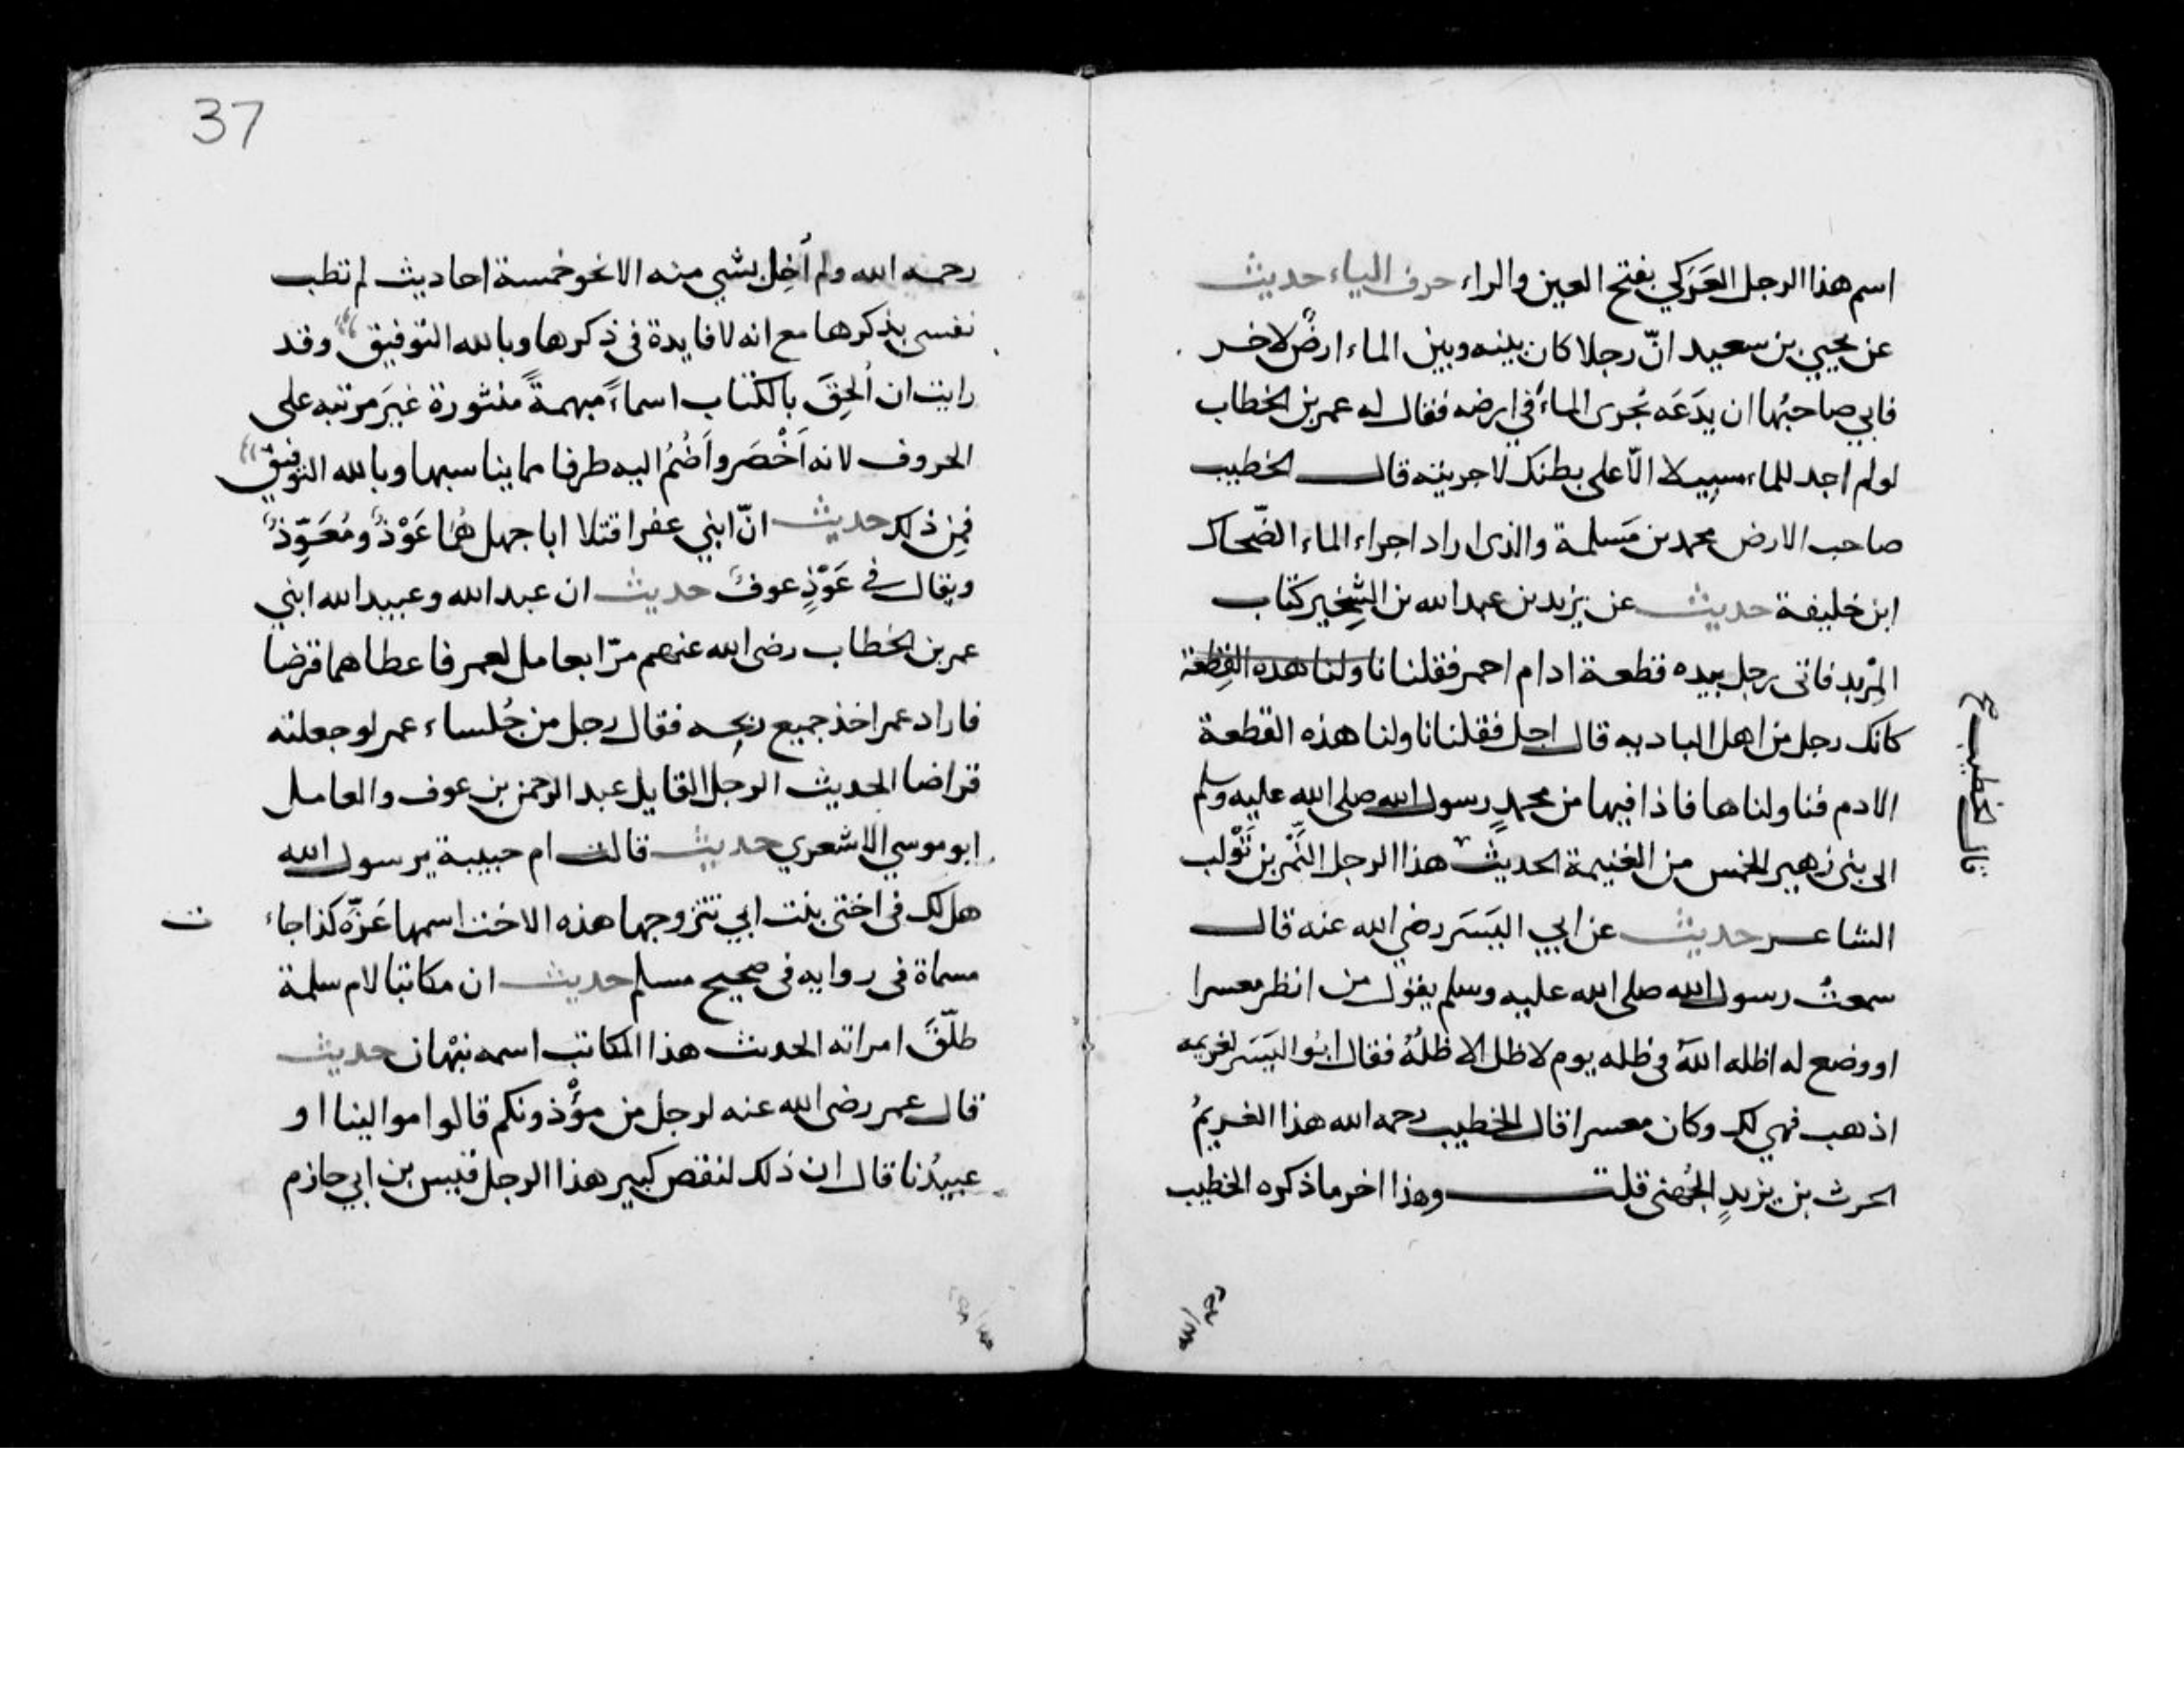 اسم هذا الرجل العَرَكي بفتح العين والراء حرف الياء حديث
عن يحيي بن سعيد انّ رجلا كان بينه وبين الماء ارضٌ لاخر
فابي صاحبُها ان يدَعَه يُجري الماءَ في ارضه فقال له عمر بن الخطاب
لو لم اجد للماء مسيلا الّا على بطنك لاجريته قال الخطيب
صاحب الارض محمد بن مَسلمة والذي اراد اجراء الماء الضّحاك
ابن خليفة حديث عن يزيد بن عبد الله بن الشِّخّير كنا ب
المِرْبد فاتى رجل بيده قطعة ادام احمر فقلنا ناولنا هذه القِطعة
كانك رجل من اهل الباديه قال اجل فقلنا ناولنا هذه القطعة
الادم فناولناها فاذا فيها من محمدٍ رسول الله صلى الله عليه وسلم
الى بني زهير الخمس من الغنيمة الحديث هذا الرجل النَّمْر بن تَوْلب
الشاعر حديث عن ابي اليَسَر رضي الله عنه قال
سمعتُ رسول الله صلى الله عليه وسلم يقول من انظر معسرا
او وضع له اظله اللهُ في ظله يوم لا ظل الا ظلهُ فقال ابُو اليَسَر لغريمه
اذهب فهي لك وكان معسرا قال الخطيب رحمه الله هذا الغريمُ
الحرث بن يزيدٍ الجُهني قلت وهذا اخر ما ذكره الخطيب
قال الخطيب
رحمه الله
37
رحمه الله ولم اُخِل بشي منه الا نحو خمسة احاديث لم تطب
نفسي بذكرها مع انه لا فايدة في ذكرها وبالله التوفيق وقد
رايت ان اُلحِقَ بالكتاب اسماءً مبهمةً منثورة غيَر مرتبه على
الحروف لانه اَخْصَر واَضُمُ اليه طرفا مما يناسبها وبالله التوفيق
فمِن ذلك حديث انّ ابني عفرا قتلا ابا جهل هُما عَوْذٌ ومُعَوِّذٌ
ويقال في عَوْذٍ عوفٌ حديث ان عبد الله وعبيد الله ابني
عمر بن الخطاب رضى الله عنهم مرّا بعامل لعمر فاعطاهما قرضا
فاراد عمر اخذ جميع ربحِه فقال رجل من جُلساء عمر لو جعلته
قراضا الحديث الرجل القايل عبد الرحمن بن عوف والعامل
ابو موسي الاشعري حديث قالت ام حبيبة يرسول الله
هل لك في اختي بنت ابي تتزوجها هذه الاخت اسمها عَزّه كذا جاء
مسماة في روايه في صحيح مسلم حديث ان مكاتبا لام سلمة
طلّقَ امراته الحديث هذا المكاتب اسمه نبْهان حديث
قال عمر رضى الله عنه لرجل من مؤْذونكم قالوا موالينا او
عبيدُنا قال ان ذلك لنقص كبير هذا الرجل قيس بن ابي حازم